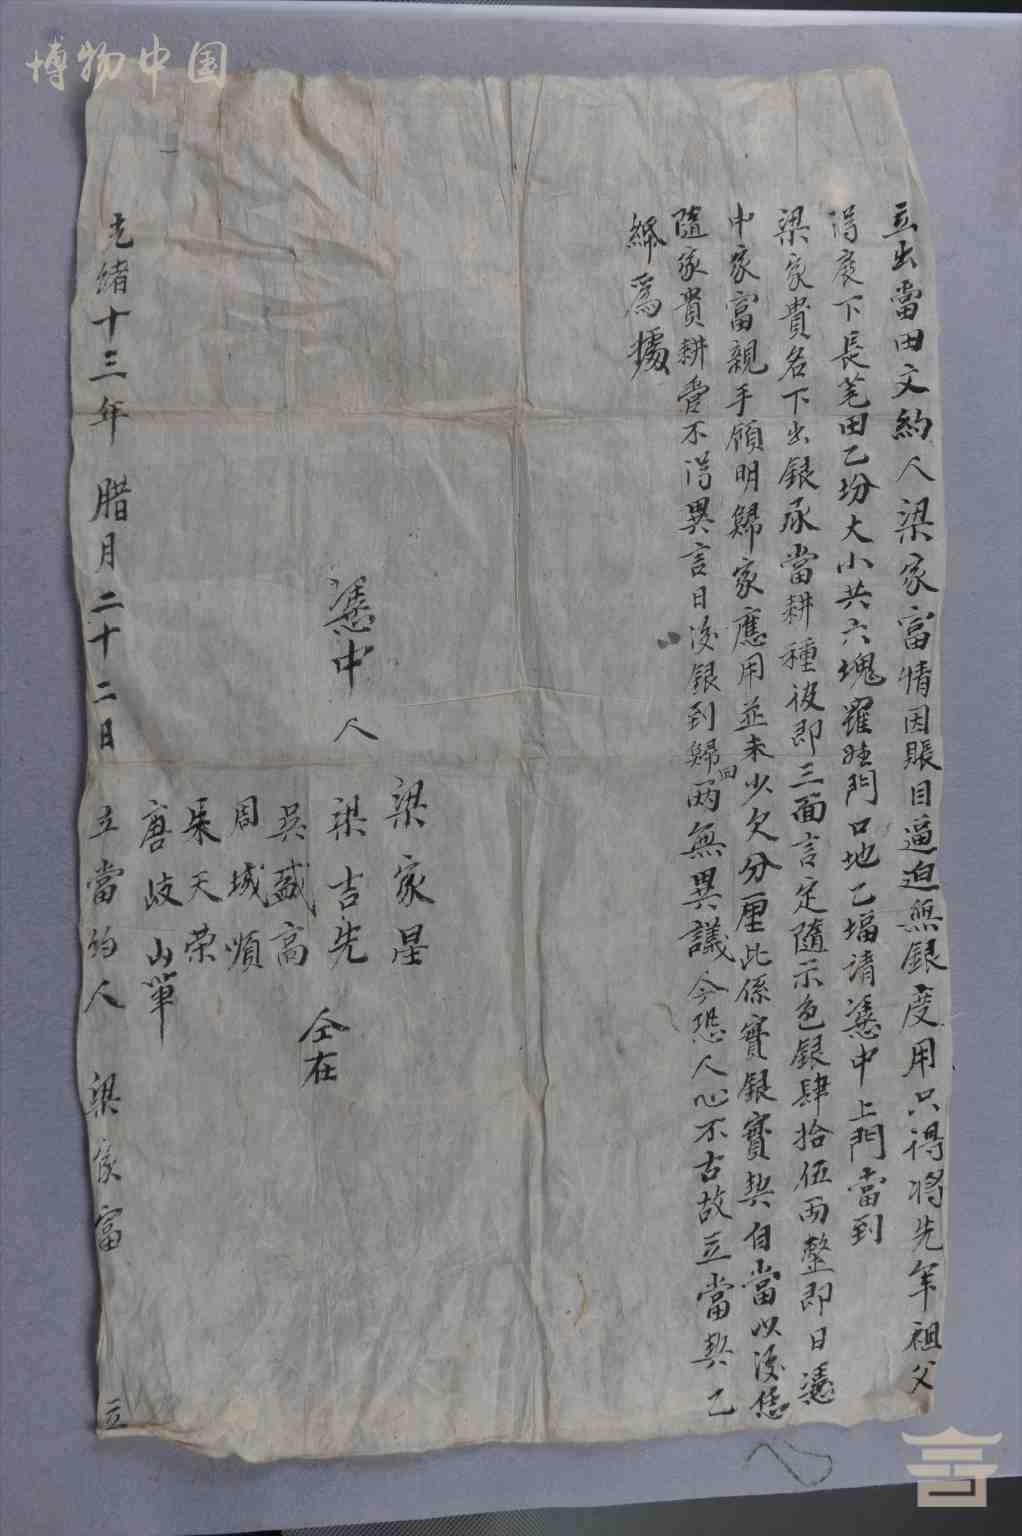 博物中国
立出當田文約人梁家富情因賬目逼迫無銀度用只得将先年祖父
得受下長芼田乙坋大小共六塊羅門口地乙塭請憑中上門當到
梁家貴名下出銀承當耕種彼即三面言定隨示色銀肆拾伍両整即日憑
中家富親手領明歸家應用並未少欠分厘此係實銀實契自當以後恁
隨家貴耕管不得異言日後銀到歸回両無異議今恐人心不古故立當契乙
紙為據
憑中人
梁家星
梁吉先
吳盛高
周城順
朱天荣
唐岐山筆
仝在
光緒十三年 腊月二十二日 立當約人 梁家富 立